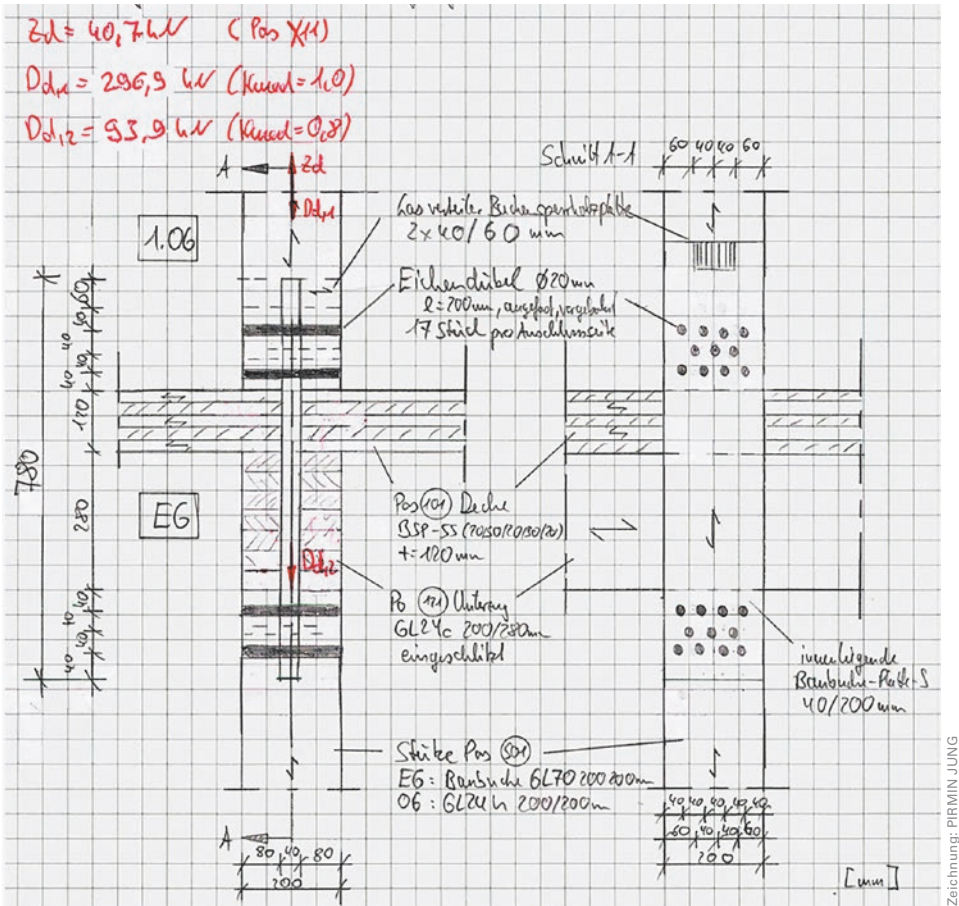 Zd = 40,7 kN (Pos X11)
Dd,1 = 296,9 kN (Kmod = 1,0)
Dd,2 = 93,9 kN (Kmod = 0,8)
A
Zd
Dd,1
1.06
Schnitt 1-1
60 40 40 60
Lastverteiler Buchensperrholzplatte
2x40/60 mm
Eichendübel Ø20mm
l=200mm, angefast, vorgebohrt
17 Stück pro Anschlussseite
60
60
40 40
40 40
120
280
40 40
40 40
780
EG
Dd,2
Pos 101 Decke
BSP-5S (20/30/20/30/20)
t=120mm
Po 121 Unterzug
GL24c 200/280mm
eingeschlitzt
innenliegende
Baubuche-Platte-S
40/200mm
Stütze Pos 501
EG: Baubuche GL70 200 200mm
OG: GL24h 200/200m
A
80 40 80
200
40 40 40 40 40
60 40 40 60
200
[mm]
Zeichnung: PIRMIN JUNG